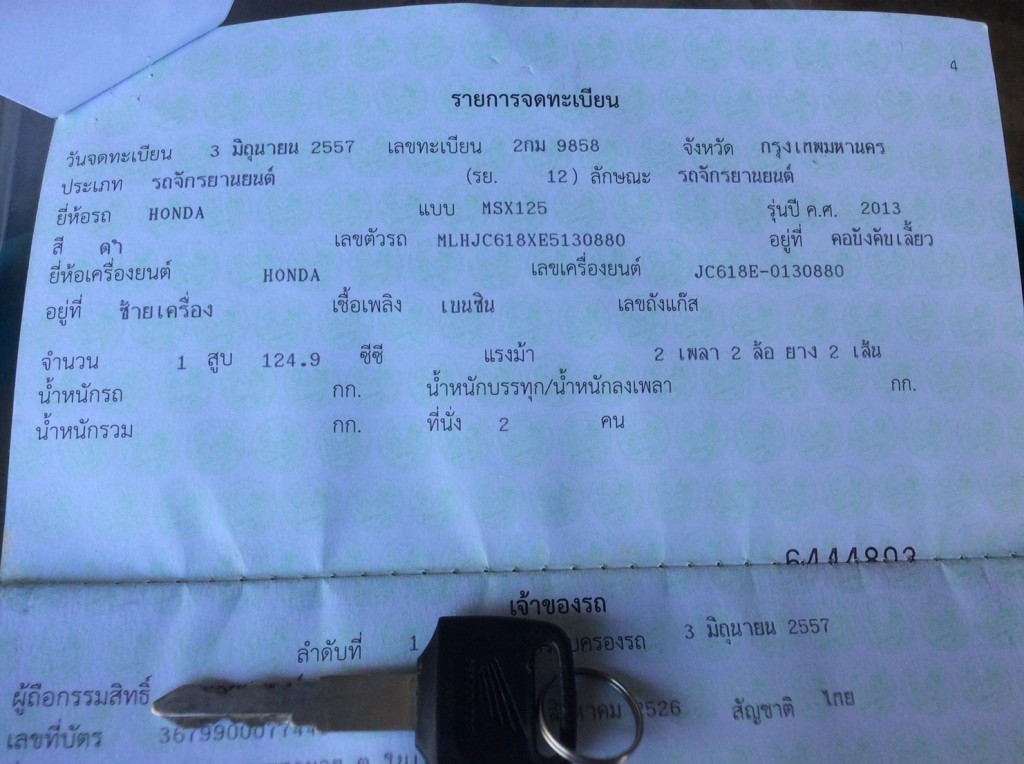 4
รายการจดทะเบียน
วันจดทะเบียน 3 มิถุนายน 2557 เลขทะเบียน 2กม 9858 จังหวัด กรุงเทพมหานคร
ประเภท รถจักรยานยนต์ (รย. 12) ลักษณะ รถจักรยานยนต์
ยี่ห้อรถ HONDA แบบ MSX125 รุ่นปี ค.ศ. 2013
สี ดำ เลขตัวรถ MLHJC618XE5130880 อยู่ที่ คอบังคับเลี้ยว
ยี่ห้อเครื่องยนต์ HONDA เลขเครื่องยนต์ JC618E-0130880
อยู่ที่ ซ้ายเครื่อง เชื้อเพลิง เบนซิน เลขถังแก๊ส
จำนวน 1 สูบ 124.9 ซีซี แรงม้า 2 เพลา 2 ล้อ ยาง 2 เส้น
น้ำหนักรถ กก. น้ำหนักบรรทุก/น้ำหนักลงเพลา กก.
น้ำหนักรวม กก. ที่นั่ง 2 คน
6444803
เจ้าของรถ
ลำดับที่ 1 ครองรถ 3 มิถุนายน 2557
ผู้ถือกรรมสิทธิ์ 2526 สัญชาติ ไทย
เลขที่บัตร